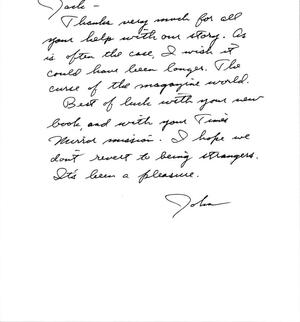 Jack -
Thanks very much for all
your help with our story. As
is often the case, I wish it
could have been longer. The
curse of the magazine world.
Best of luck with your new
book, and with your Times
Mirror mission. I hope we
don't revert to being strangers.
It's been a pleasure.
John